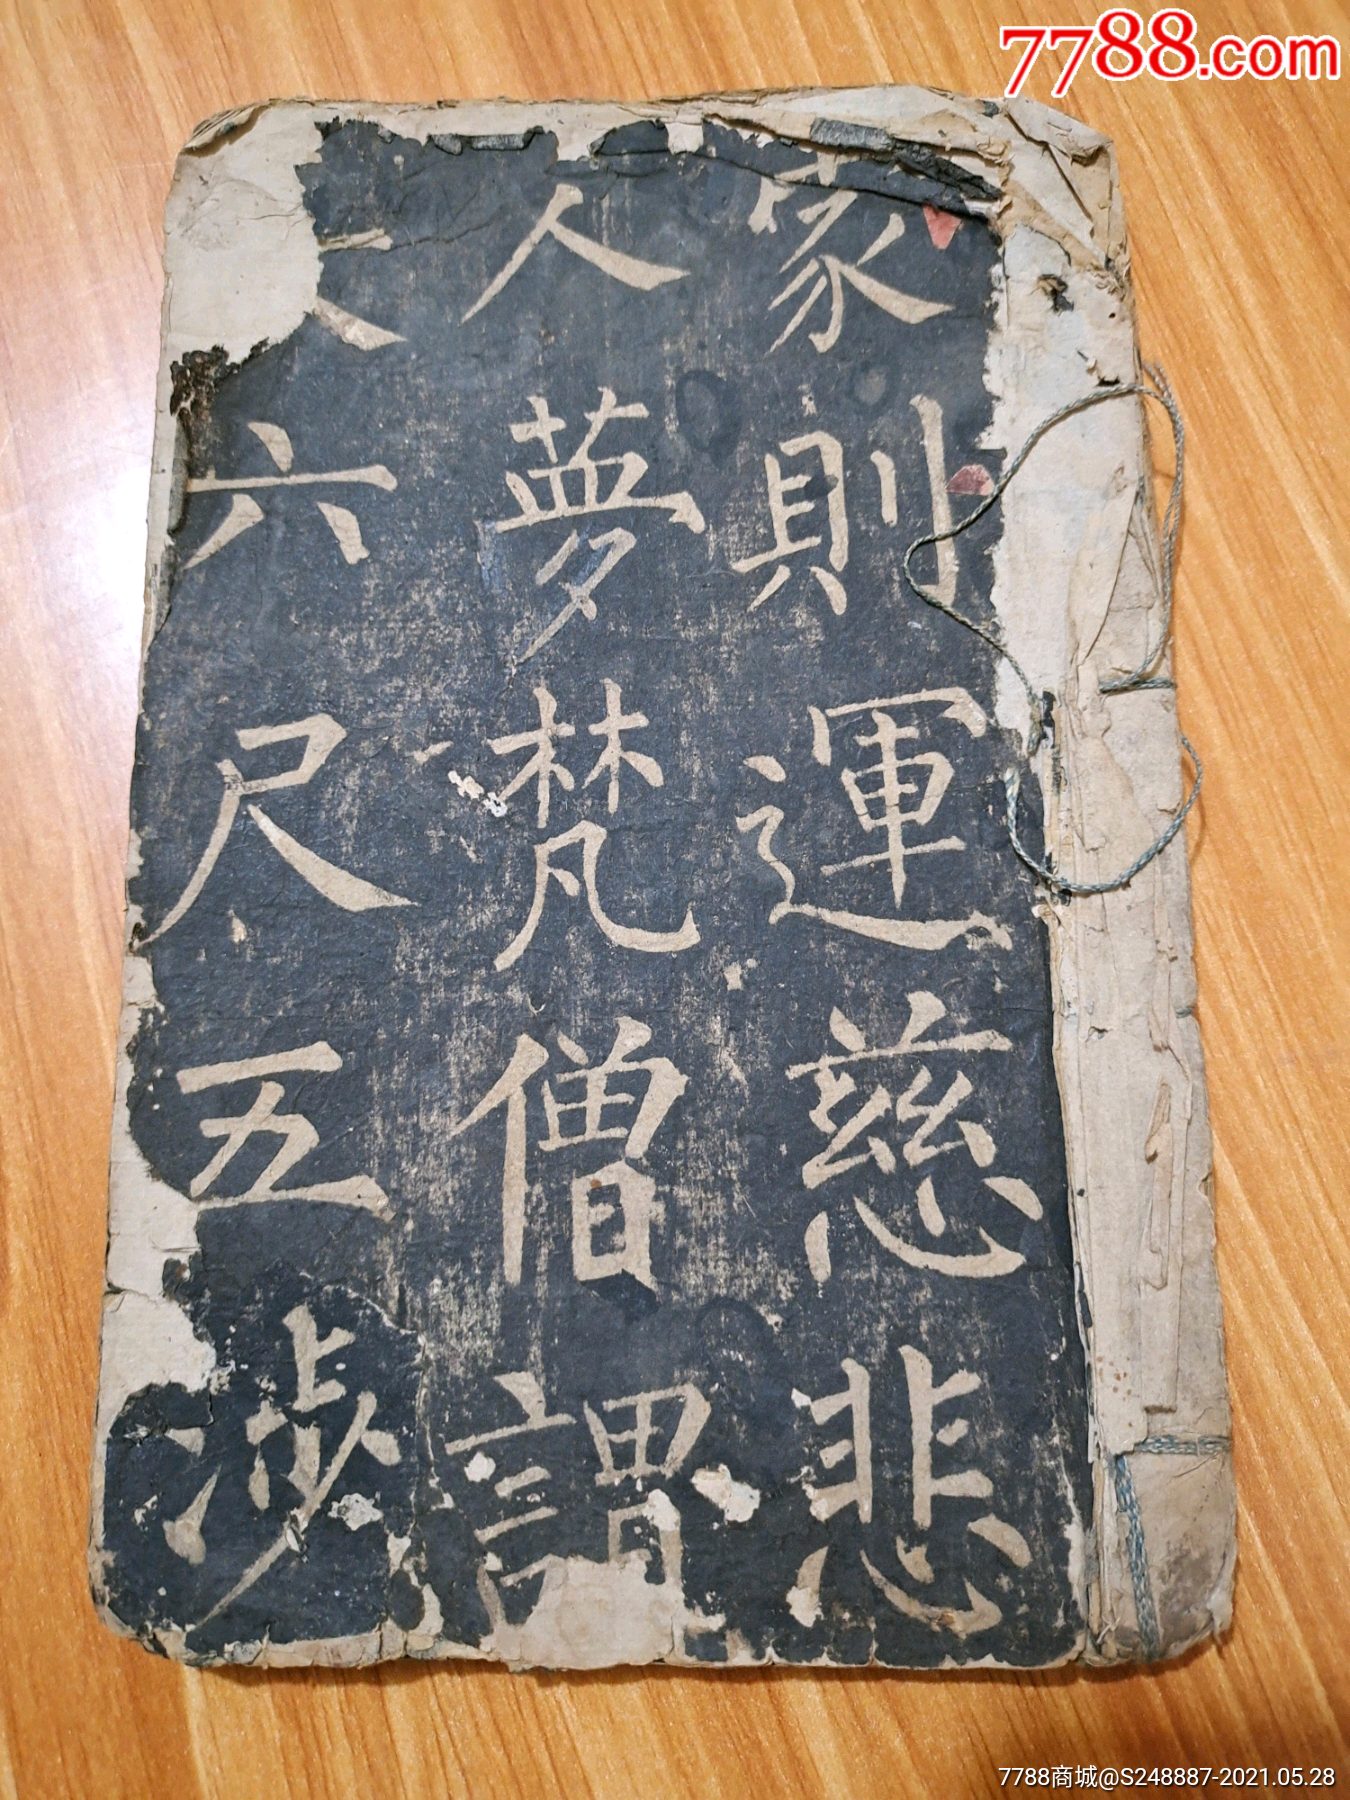 7788.com
家則運慈悲
人夢梵僧謂
六尺五涉
7788商城@S248887-2021.05.28